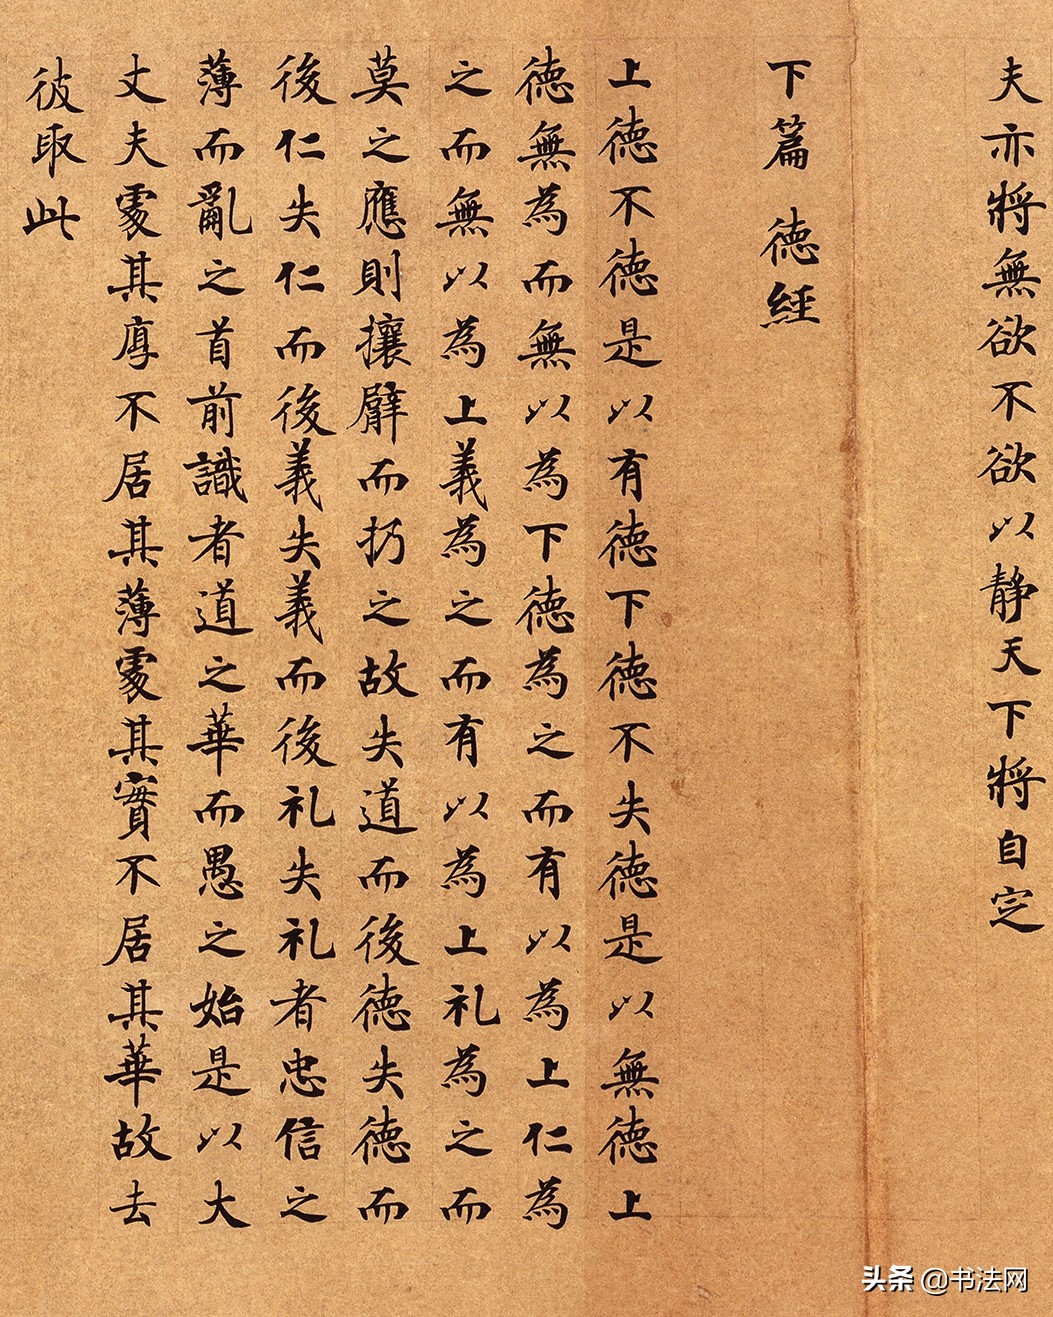 夫亦將無欲不欲以静天下將自定
下篇 德經
上德不德是以有德下德不失德是以無德上
德無為而無以為下德為之而有以為上仁為
之而無以為上義為之而有以為上礼為之而
莫之應則攘臂而扔之故失道而後德失德而
後仁失仁而後義失義而後礼失礼者忠信之
薄而亂之首前識者道之華而愚之始是以大
丈夫處其厚不居其薄處其實不居其華故去
彼取此
头条 @书法网